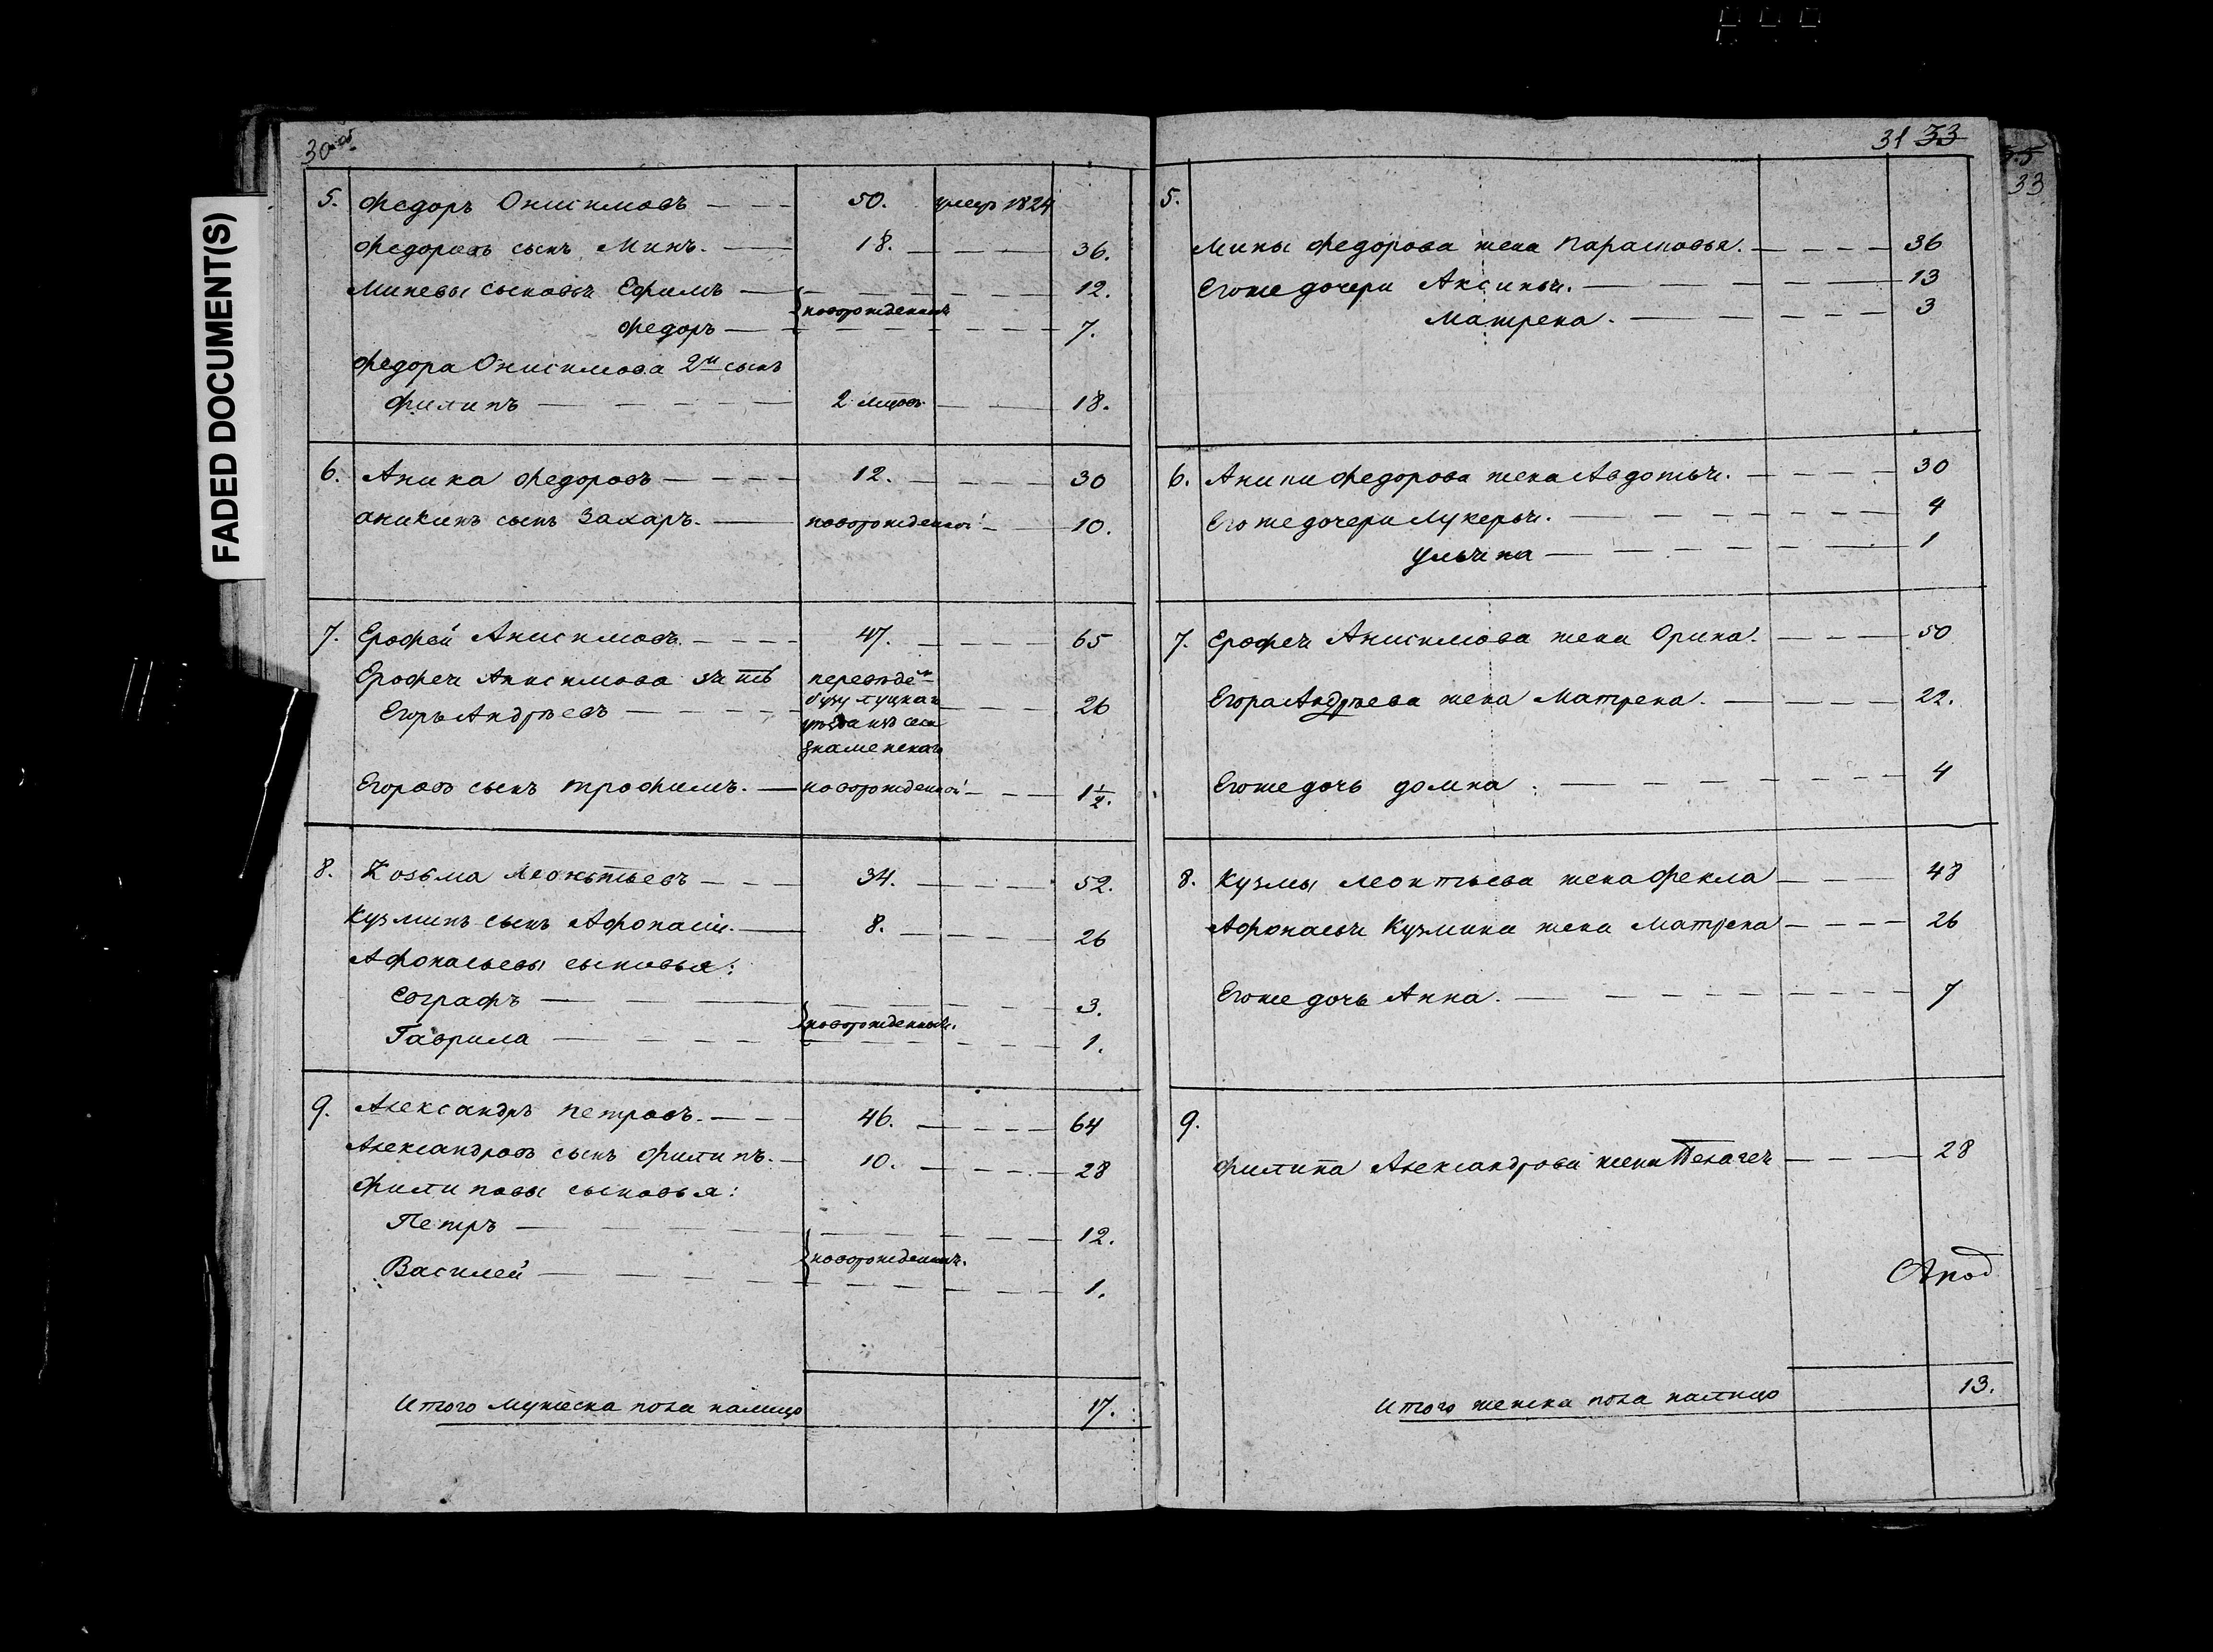 30 об.
5. Федоръ Онисимовъ — 50. умеръ 1824
Федоровъ сынъ Минъ. — 18. — 36.
Миневы сыновья Ефимъ — 12.
новорожденныя
Федоръ — 7.
Федора Онисимова 2й сынъ
Филипъ — 2 мцовъ — 18.
6. Аника Федоровъ — 12. — 30
Аникинъ сынъ Захаръ. — новорожденной — 10.
7. Ерофей Анисимовъ. — 47. — 65
Ерофея Анисимова зять переведен
Егоръ Андреевъ — бузулуцкаго — 26
уезда изъ села
знаменскаго
Егоровъ сынъ Трофимъ. — новорожденной — 1 1/2.
8. Козьма Леонтьевъ — 34. — 52.
Кузминъ сынъ Афонасий. — 8. — 26
Афонасьевы сыновья:
Евграфъ — 3.
новорожденныя.
Гаврила — 1.
9. Александръ Петровъ. — 46. — 64
Александровъ сынъ Филипъ. — 10. — 28
Филиповы сыновья:
Петръ — 12.
новорожденныя.
Василей — 1.
Итого мужеска пола налицо 17.
31 33
5.
Мины Федорова жена Парасковья. — 36
Егоже дочери Аксинья. — 13
Матрена. — 3
6. Аники Федорова жена Авдотья. — 30
Егоже дочери Лукерья. — 4
Ульяна — 1
7. Ерофея Анисимова жена Орина. — 50
Егора Андреева жена Матрена. — 22.
Егоже дочь домна. — 4
8. Кузмы Леонтьева жена Фекла — 48
Афонасья Кузмина жена Матрена — 26
Егоже дочь Анна. — 7
9.
Филипа Александрова жена Пелагея — 28
Итого женска пола налицо 13.
33
FADED DOCUMENT(S)